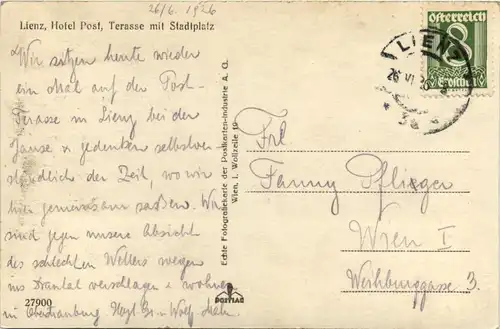 26/6. 1926
Lienz, Hotel Post, Terasse mit Stadtplatz
Wir sitzen heute wieder
ein Mal auf der Post-
Terasse in Lienz bei der
Jause u gedenken selbstver
ständlich der Zeit, wo wir
hier gemeinsam saßen. Wir
sind gegen unsere Absicht
des schlechten Wetters wegen
ins Drautal verschlagen u wohnen
in Oberdrauburg
27900
Echte Fotografiekarte der Postkarten-Industrie A. G.
Wien, I. Wollzeile 19
POSTIAG
Österreich
8
Groschen
LIENZ
26 VI 26
Frl
Fanny Pflieger
Wien I
Weihburggasse 3.